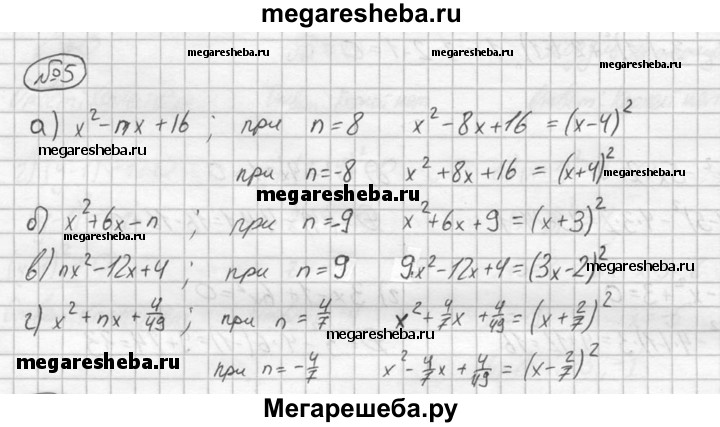 megaresheba.ru
megaresheba.ru megaresheba.ru
№5
а) x² - nx + 16 ; при n = 8 x² - 8x + 16 = (x - 4)²
megaresheba.ru
при n = -8 x² + 8x + 16 = (x + 4)²
megaresheba.ru
megaresheba.ru
б) x² + 6x - n ; при n = -9 x² + 6x + 9 = (x + 3)²
megaresheba.ru
в) nx² - 12x + 4 ; при n = 9 9x² - 12x + 4 = (3x - 2)²
megaresheba.ru
г) x² + nx + 4/49 ; при n = 4/7 x² + 4/7x + 4/49 = (x + 2/7)²
megaresheba.ru
megaresheba.ru
при n = -4/7 x² - 4/7x + 4/49 = (x - 2/7)²
Мегарешеба.ру